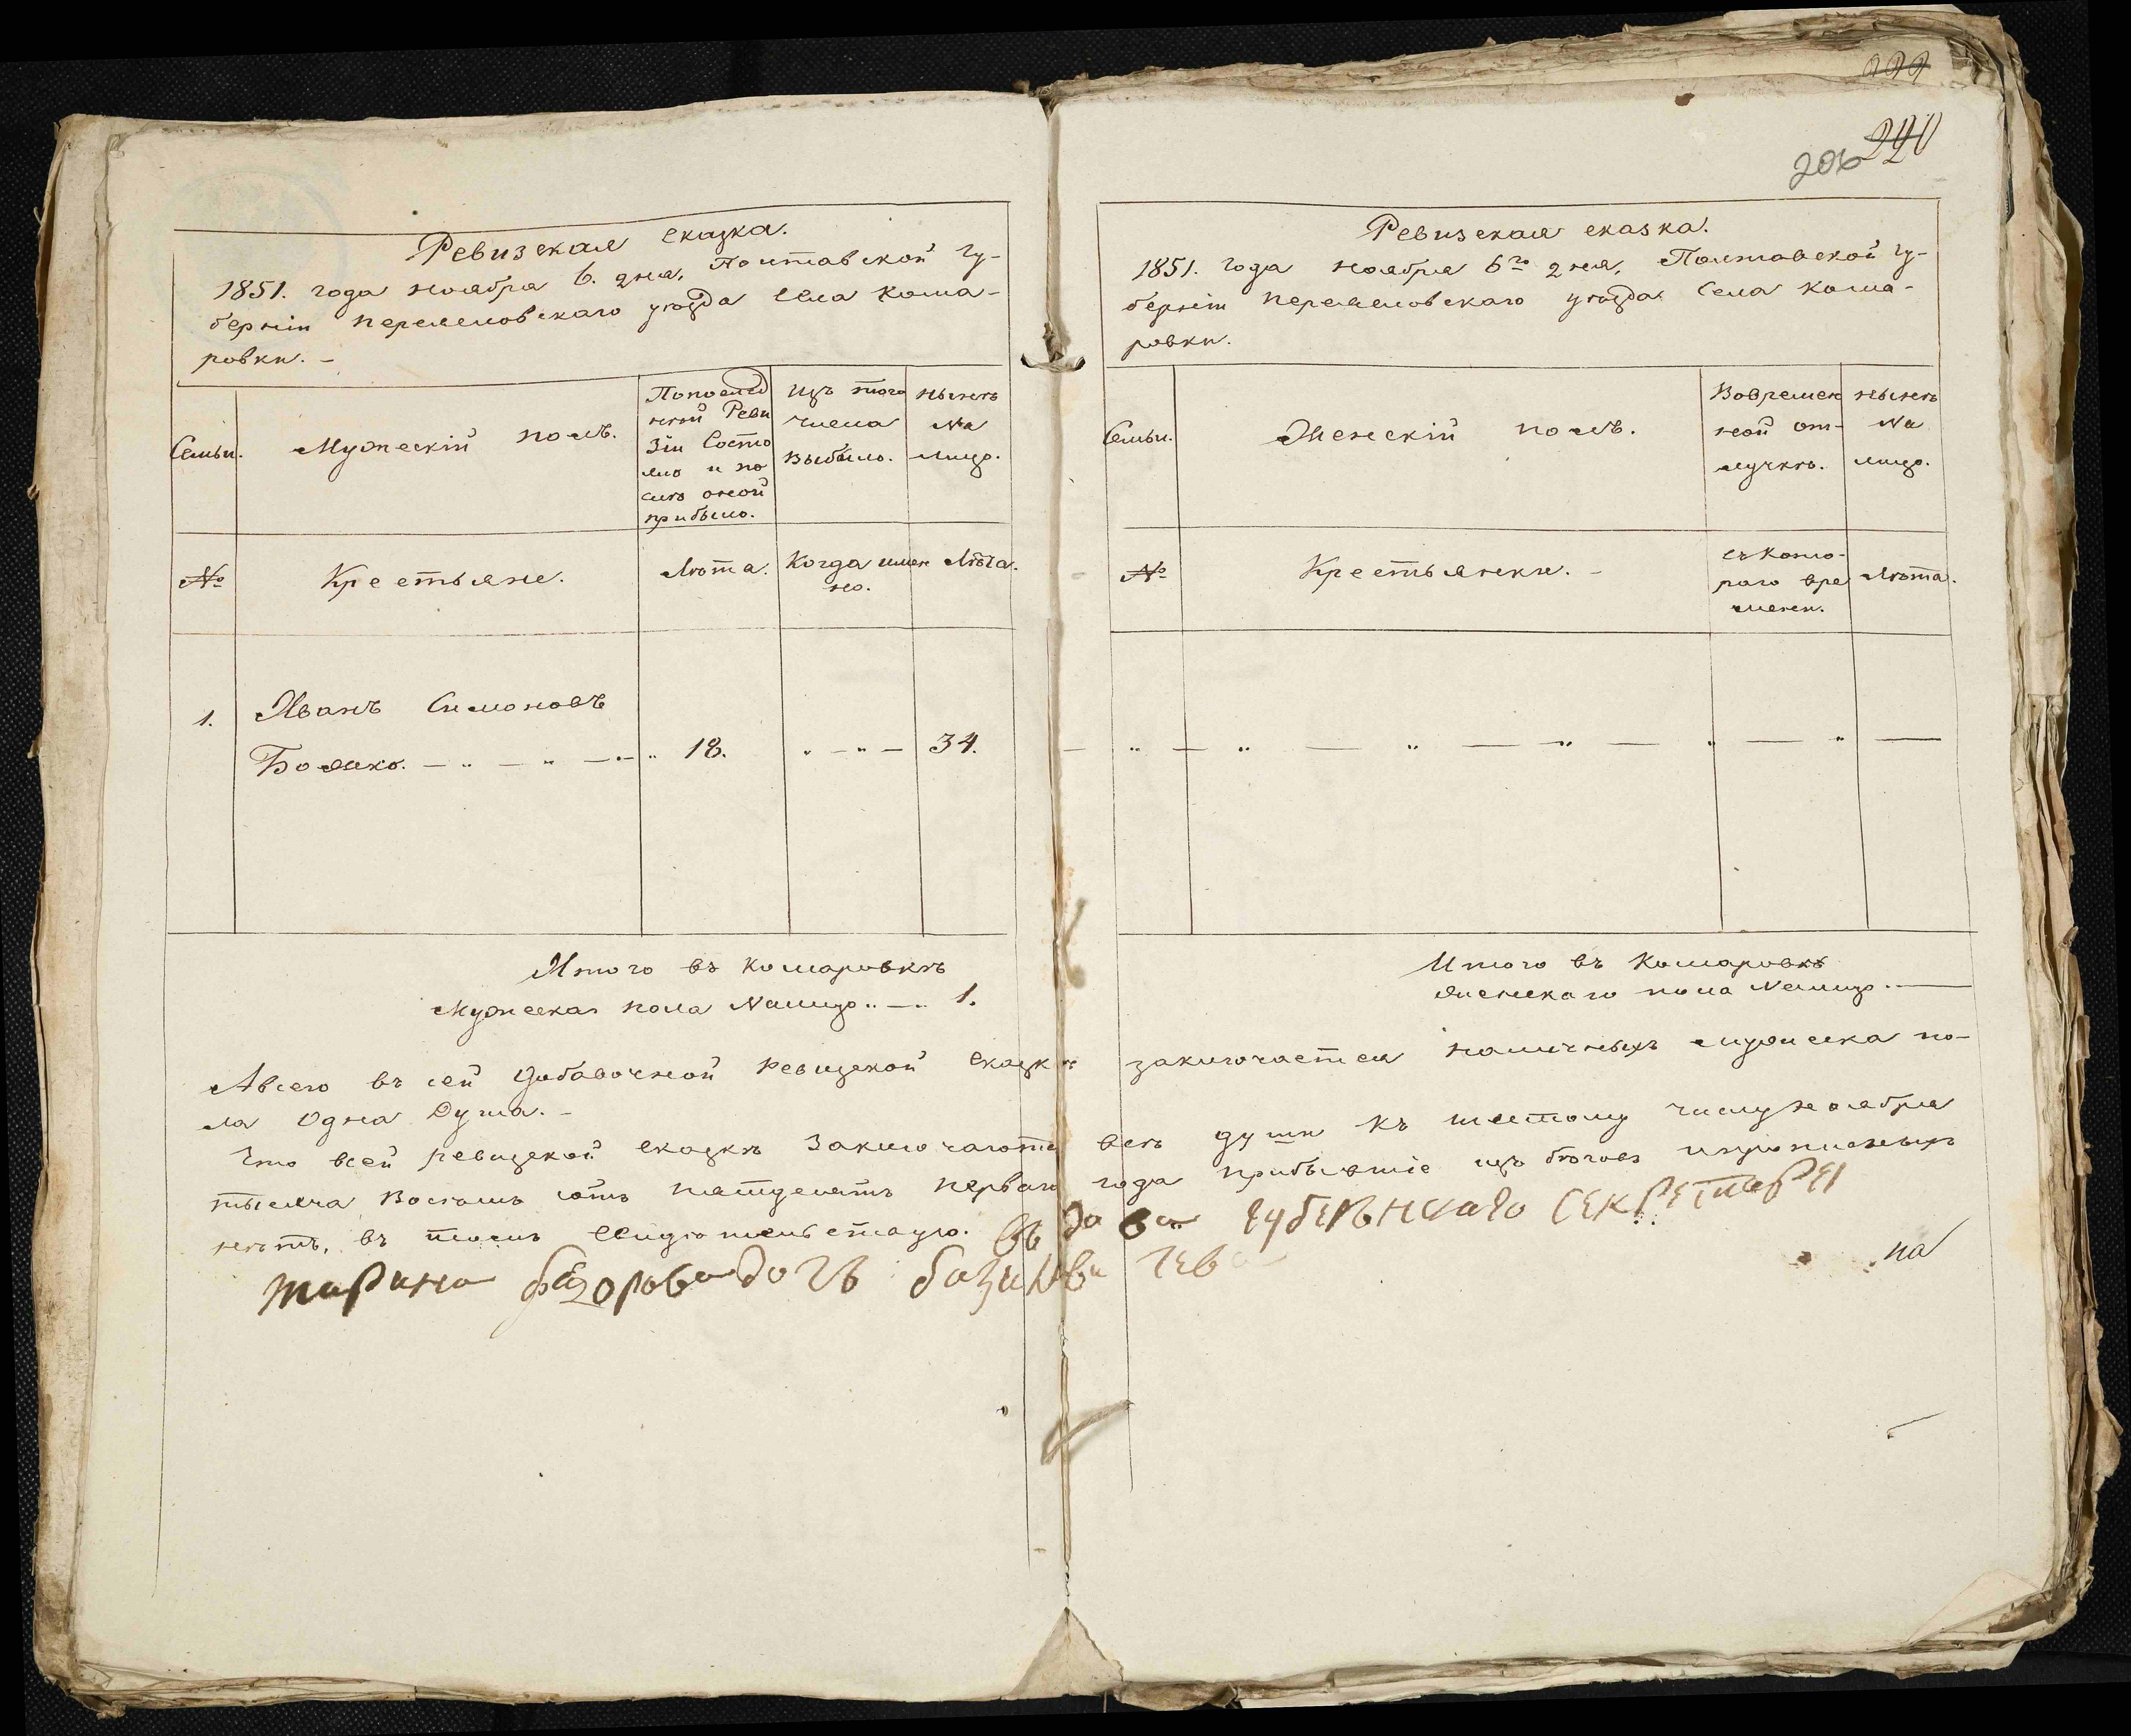 222
240
206
Ревизская сказка.
1851. года ноября 6. дня, Полтавской Гу-
берніи Переяславскаго уѣзда села Кома-
ровки. –
Семьи.
Мужескій полъ.
Попослѣд
ней Реви
зіи Состо
яло и по
слѣ оной
прибыло.
изъ того
числа
выбыло.
нынѣ
на
лицо.
№
Крестьяне.
Лѣта.
Когда имен
но.
Лѣта.
1.
Иванъ Симоновъ
Божко. — „ — „ — „ 18. „ — „ — 34.
Итого въ Комаровкѣ
Мужеска пола налицо „ — „ 1.
Ревизская сказка.
1851. года ноября 6го дня, Полтавской Гу-
берніи Переяславскаго уѣзда Села Кома-
ровки.
Семьи.
Женскій полъ.
Вовремен
ной от-
лучкѣ.
нынѣ
на
лицо.
№
Крестьянки. –
съ кото-
раго вре
мени.
Лѣта.
— „ — „ — „ — „ — „ — „ —
Итого въ Комаровкѣ
Женскаго пола налицо. —
А всего въ сей добавочной ревизской сказкѣ заключается наличныхъ мужеска по-
ла Одна Душа. –
Что всей ревизской сказкѣ Заключаются всѣ души къ шестому числу ноября
тысяча восемь сотъ пятдесятъ перваго года прибывшіе изъ бѣговъ и прописныхъ
нетъ, въ томъ свидѣтельствую. вдова губернскаго секретаря
марина федорова дочь
на